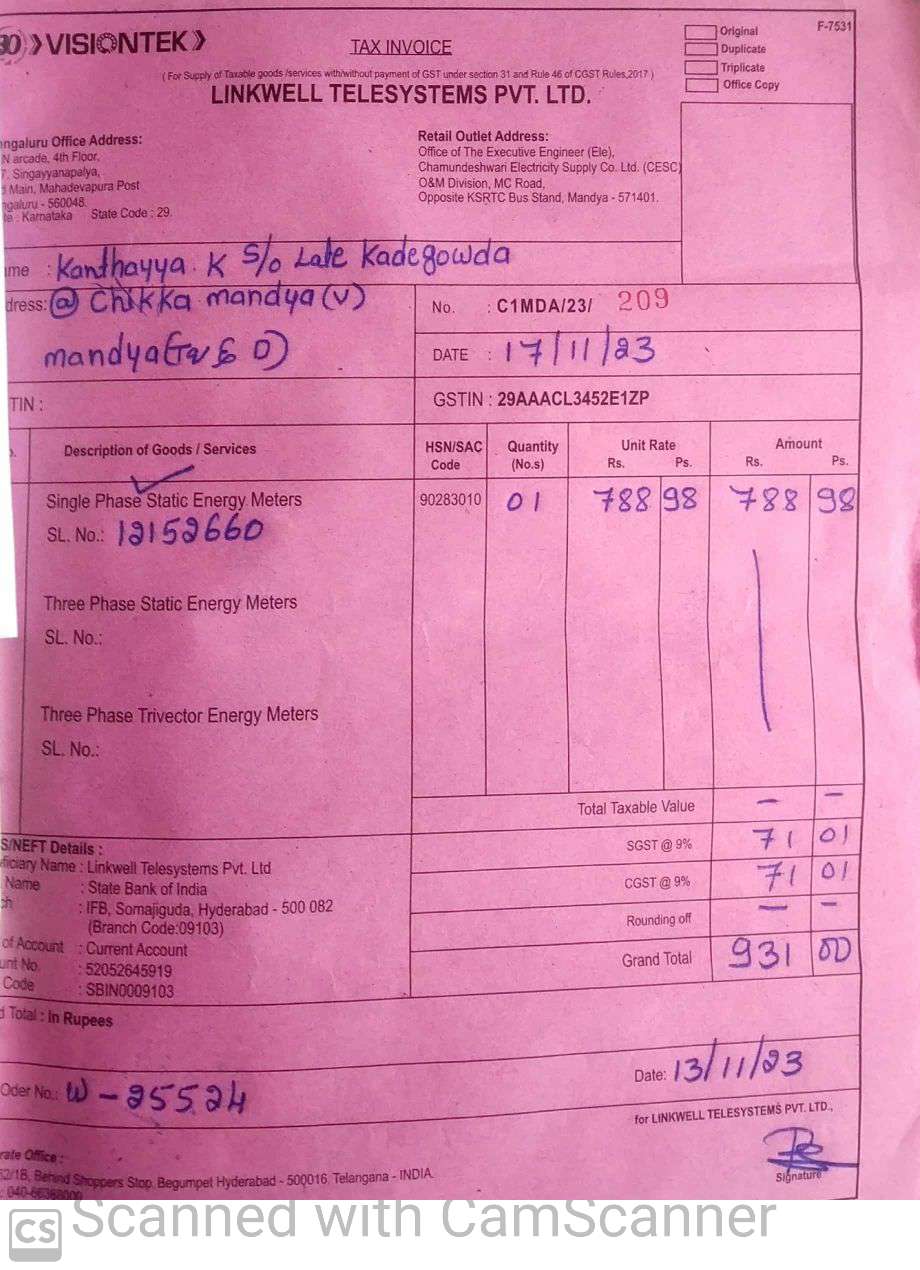 VISIONTEK
TAX INVOICE
Original
Duplicate
Triplicate
Office Copy
F-7531
( For Supply of Taxable goods /services with/without payment of GST under section 31 and Rule 46 of CGST Rules,2017 )
LINKWELL TELESYSTEMS PVT. LTD.
ngaluru Office Address:
N arcade, 4th Floor,
7, Singayyanapalya,
Main, Mahadevapura Post
ngaluru - 560048.
te : Karnataka State Code : 29.
Retail Outlet Address:
Office of The Executive Engineer (Ele),
Chamundeshwari Electricity Supply Co. Ltd. (CESC)
O&M Division, MC Road,
Opposite KSRTC Bus Stand, Mandya - 571401.
me : Kanthayya. K S/o Late Kadegowda
dress: @ Chikka mandya (V)
mandya (Tq & D)
No. : C1MDA/23/ 209
DATE : 17/11/23
TIN :
GSTIN : 29AAACL3452E1ZP
Description of Goods / Services
HSN/SAC Code
Quantity (No.s)
Unit Rate Rs. Ps.
Amount Rs. Ps.
Single Phase Static Energy Meters 90283010 01 788 98 788 98
SL. No.: 12152660
Three Phase Static Energy Meters
SL. No.:
Three Phase Trivector Energy Meters
SL. No.:
Total Taxable Value - -
SGST @ 9% 71 01
CGST @ 9% 71 01
Rounding off - -
Grand Total 931 00
S/NEFT Details :
ficiary Name : Linkwell Telesystems Pvt. Ltd
Name : State Bank of India
ch : IFB, Somajiguda, Hyderabad - 500 082
(Branch Code:09103)
of Account : Current Account
unt No. : 52052645919
Code : SBIN0009103
d Total : In Rupees
Oder No.: W - 25524
Date: 13/11/23
for LINKWELL TELESYSTEMS PVT. LTD.,
Signature
rate Office :
62/1B, Behind Shoppers Stop, Begumpet Hyderabad - 500016, Telangana - INDIA.
: 040-66388000
CS Scanned with CamScanner